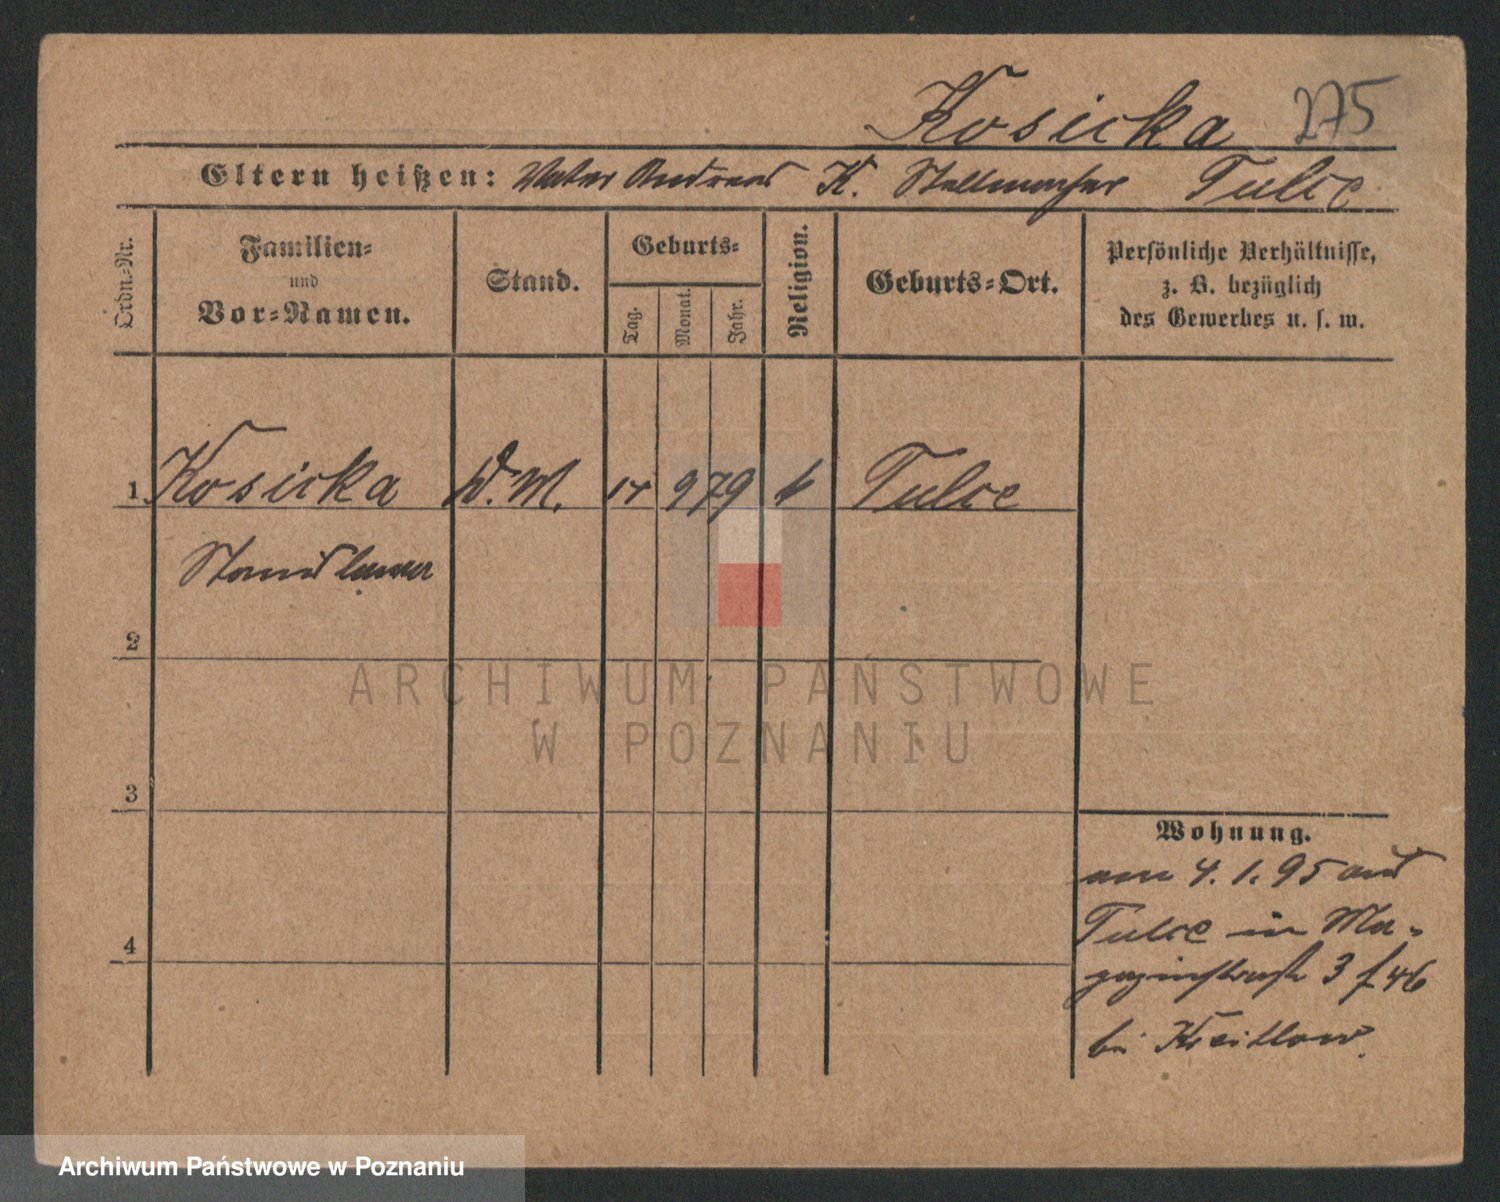 Kosicka 275
Eltern heißen: Vater Andreas K. Stellmacher Tulce
Ordn.-Nr.
Familien-
und
Vor-Namen.
Stand.
Geburts-
Tag.
Monat.
Jahr.
Religion.
Geburts-Ort.
Persönliche Verhältnisse,
z. B. bezüglich
des Gewerbes u. s. w.
1. Kosicka D. M. 9 79 k Tulce
2
3
4
Wohnung.
am 4. 1. 95 aus
Tulce in Ma-
gazinstraße 3 46
bei Kreitlow.
ARCHIWUM PAŃSTWOWE
W POZNANIU
Archiwum Państwowe w Poznaniu